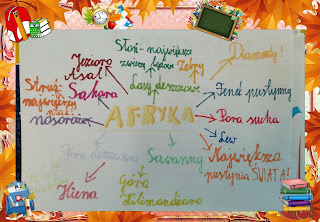 Słoń - największe
zwierzę lądowe
Jezioro
Asal!
Zebry
Diamenty!
Struś -
największy
ptak!
Sahara
Lasy deszczowe
Fenek pustynny
nosorożce
AFRYKA
Pora sucha
Lew
Pora deszczowa
Sawanny
Największa
pustynia ŚWIATA!
Hiena
Góra
Kilimandżaro